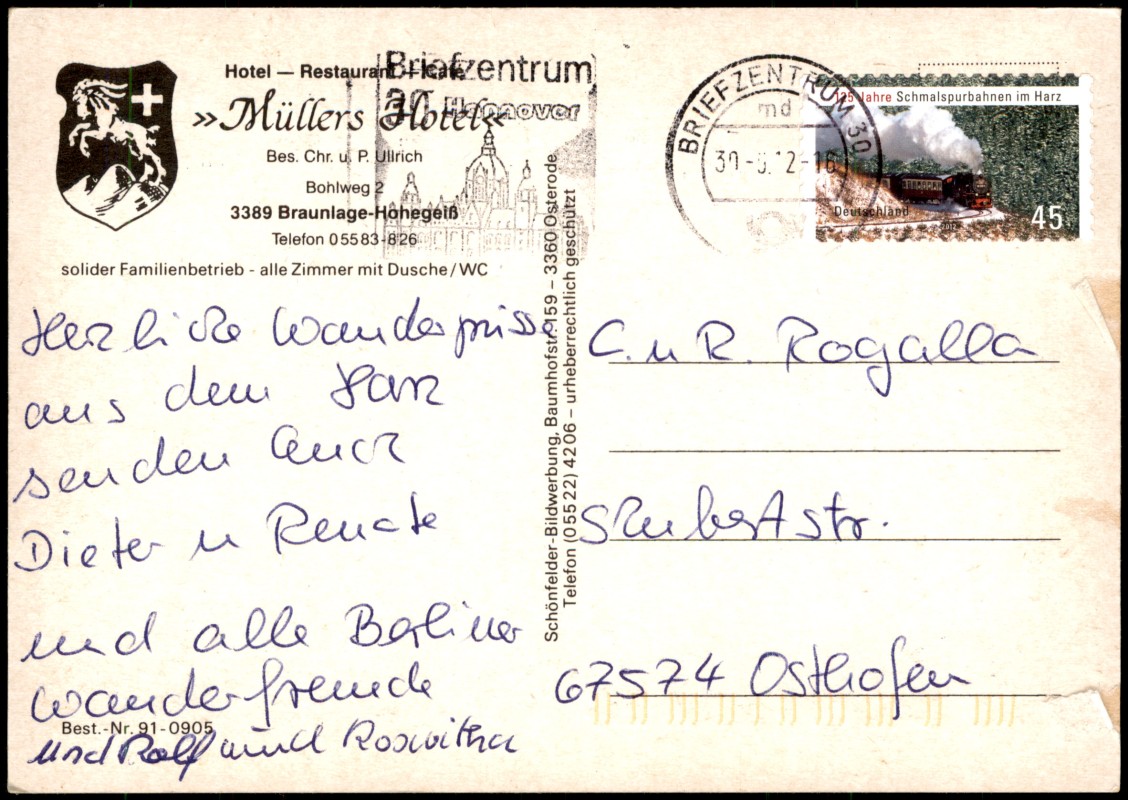 Hotel — Restaurant — Café
»Müllers Hotel«
Bes. Chr. u. P. Ullrich
Bohlweg 2
3389 Braunlage-Hohegeiß
Telefon 05583-826
solider Familienbetrieb - alle Zimmer mit Dusche/WC
Briefzentrum
30 Hannover
BRIEFZENTRUM 30
md
125 Jahre Schmalspurbahnen im Harz
Deutschland
2012
45
Herzliche Wandergrüsse
aus dem Harz
senden Euch
Dieter u Renate
und alle Berliner
Wanderfreunde
und Rolf und Roswitha
Best.-Nr. 91-0905
Schönfelder-Bildwerbung, Baumhofstr. 159 – 3360 Osterode
Telefon (05522) 4206 – urheberrechtlich geschützt
C. u R. Rogalla
Schubertstr.
67574 Osthofen